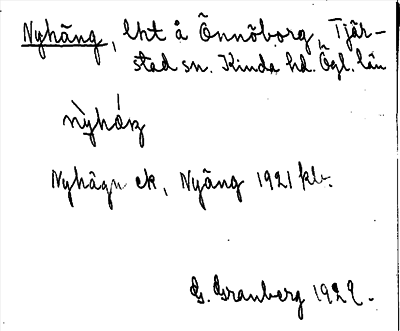 Nyhäng, lht å Önnöborg, Tjär-
stad sn. Kinda hd. Ögl. län
nỳhóŋ
Nyhägn ek, Nyäng 1921 kb.
G. Granberg 1929.